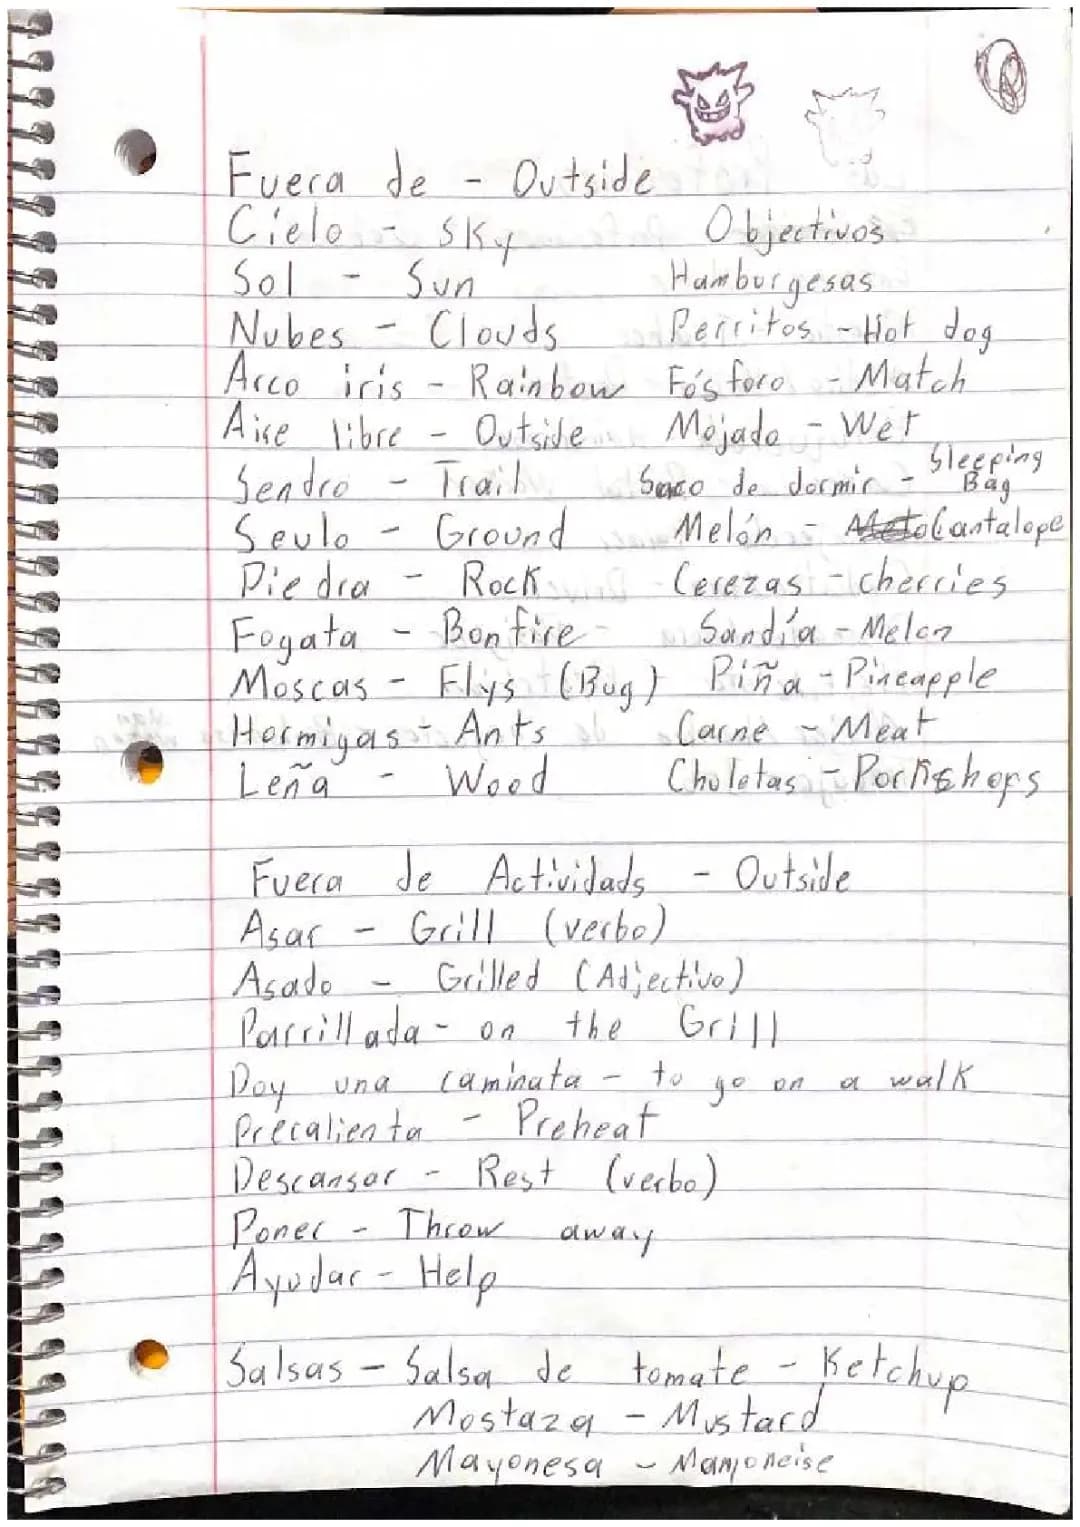 Fuera de - Outside
Cielo - Sky
Sol - Sun
Nubes - Clouds
Arco iris - Rainbow
Aire libre - Outside
Sendro - Trail
Seulo - Ground
Piedra - Rock
Fogata - Bonfire
Moscas - Flys (Bug)
Hormigas - Ants
Leña - Wood
Objectivos
Hamburgesas
Perritos - Hot dog
Fósforo - Match
Mojado - Wet
Saco de dormir - Sleeping Bag
Melón - Cantalope
Cerezas - cherries
Sandía - Melon
Piña - Pineapple
Carne - Meat
Chuletas - Porkshops
Fuera de Actividads - Outside
Asar - Grill (verbo)
Asado - Grilled (Adjectivo)
Parrillada - on the Grill
Doy una caminata - to go on a walk
Precalienta - Preheat
Descansar - Rest (verbo)
Poner - Throw away
Ayudar - Help
Salsas - Salsa de tomate - Ketchup
Mostaza - Mustard
Mayonesa - Manyoneise